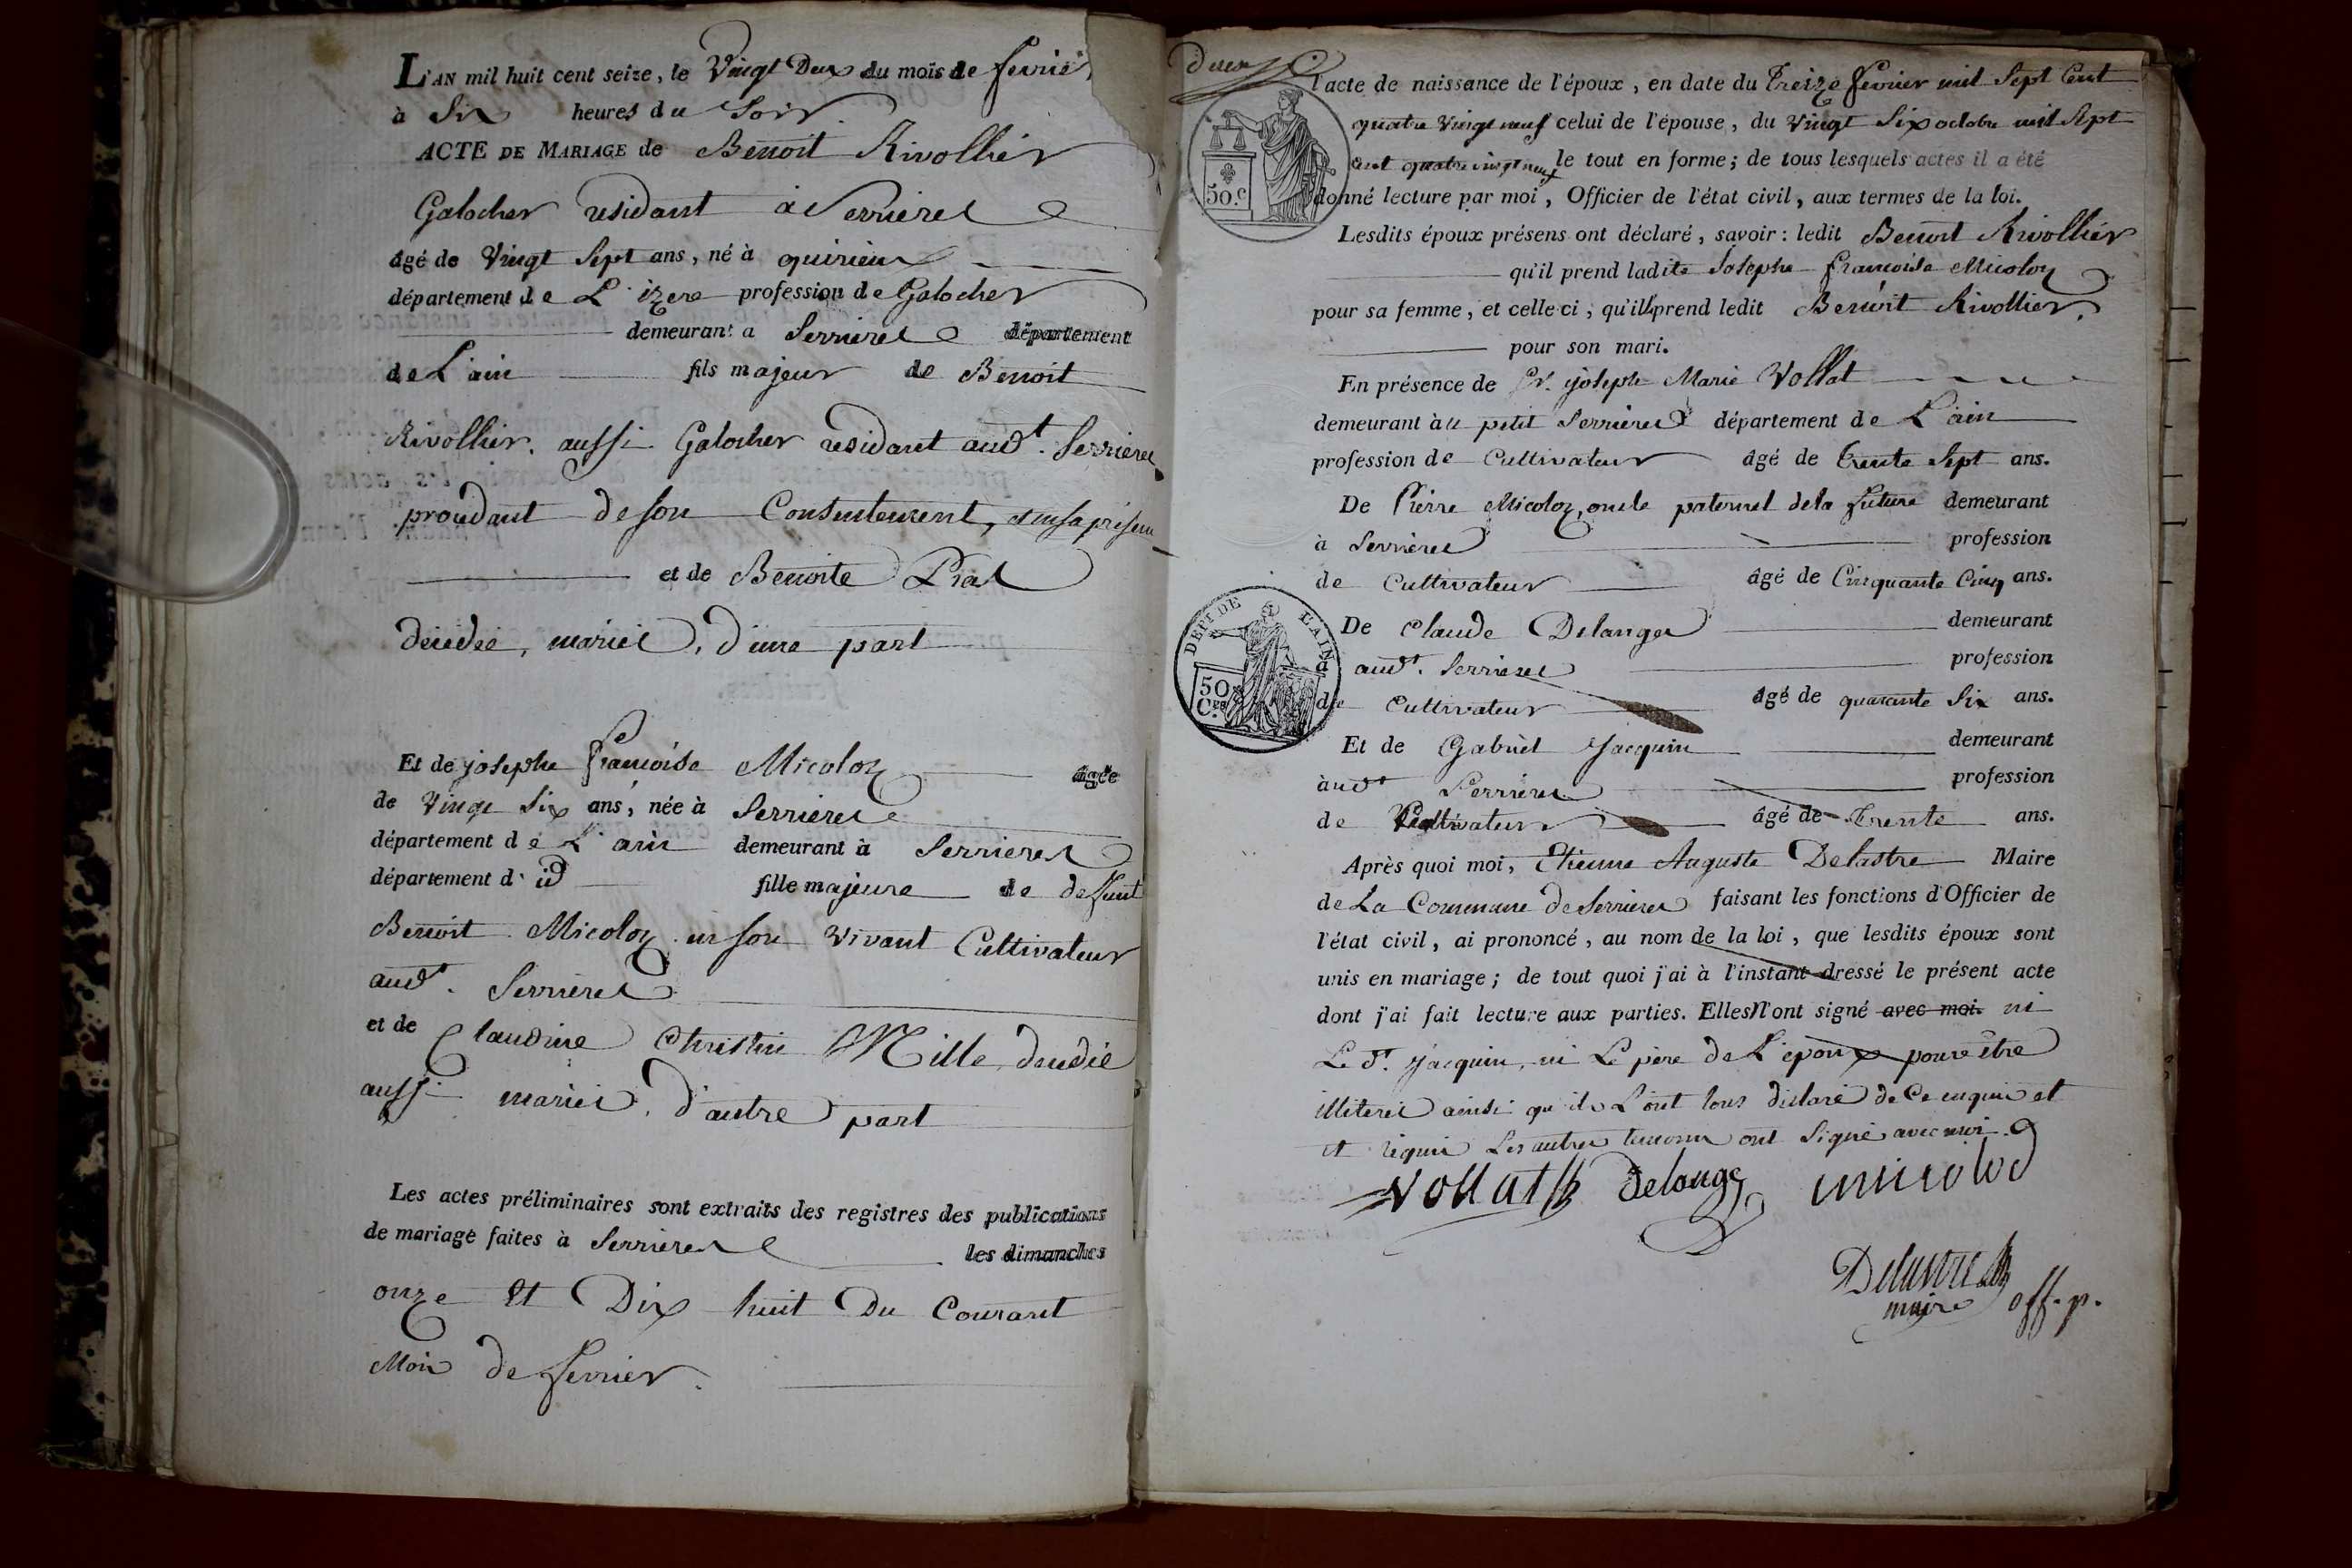 L'AN mil huit cent seize, le Vingt Deux du mois de fevrier
à Six heures du Soir
ACTE DE MARIAGE de Benoit Rivollier
Galocher residant à Serrieres
âgé de Vingt Sept ans, né à quirieu
département de L'izere profession de Galocher
demeurant a Serrieres département
de L'ain fils majeur de Benoit
Rivollier aussi Galocher residant audt. Serrieres
procedant de son Consentement, et en sa présence
et de Benoite Prat
décédée, mariés, d'une part
Et de josephe françoise Micoloz âgée
de Vingt Six ans, née à Serrieres
département de L'ain demeurant à Serrieres
département d' id fille majeure de deffunt
Benoit Micoloz en son vivant Cultivateur
audt. Serrieres
et de Claudine Christin Mille décédée
aussi mariés, d'autre part
Les actes préliminaires sont extraits des registres des publications
de mariage faites à Serrieres les dimanches
onze Et Dix huit Du Courant
Mois de fevrier.
Deux
l'acte de naissance de l'époux, en date du Treize fevrier mil Sept Cent
quatre Vingt neuf celui de l'épouse, du Vingt Six octobre mil Sept
cent quatre vingt neuf le tout en forme; de tous lesquels actes il a été
donné lecture par moi, Officier de l'état civil, aux termes de la loi.
50.c
Lesdits époux présens ont déclaré, savoir: ledit Benoit Rivollier
qu'il prend ladite Josephe françoise Micoloz
pour sa femme, et celle-ci, qu'elle prend ledit Benoit Rivollier.
pour son mari.
En présence de Sr. joseph Marie Vollat
demeurant au petit Serrieres département de L'ain
profession de Cultivateur âgé de trente Sept ans.
De Pierre Micoloz, oncle paternel de la future demeurant
à Serrieres profession
de Cultivateur âgé de Cinquante Cinq ans.
DEPT. DE L'AIN
50 Ces
De Claude Delanger demeurant
à audt. Serrieres profession
de Cultivateur âgé de quarante Six ans.
Et de Gabriel Jacquin demeurant
à audt Serrieres profession
de Cultivateur âgé de Trente ans.
Après quoi moi, Etienne Auguste Delastre Maire
de La Commune de Serrieres faisant les fonctions d'Officier de
l'état civil, ai prononcé, au nom de la loi, que lesdits époux sont
unis en mariage; de tout quoi j'ai à l'instant dressé le présent acte
dont j'ai fait lecture aux parties. Elles N'ont signé avec moi. ni
Le dt. Jacquin, ni Le père de L'époux pour être
illiterés ainsi qu'ils L'ont tous déclaré de Ce enquis et
et requis Les autres temoins ont Signé avec moi
Vollat Delange micolod
Delastre
maire off. p.